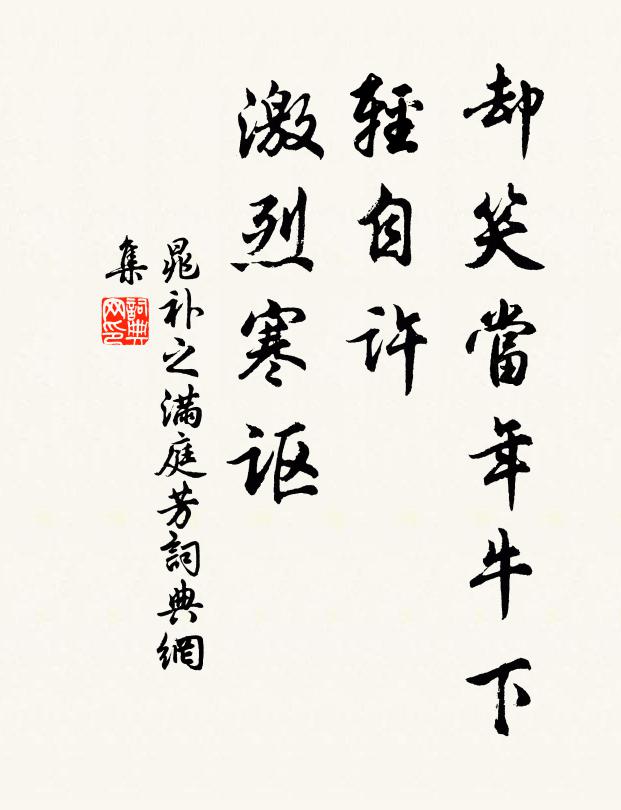 却笑當年牛下
輕自許
激烈寒讴
晁补之满庭芳詞典網
集
詞典网印